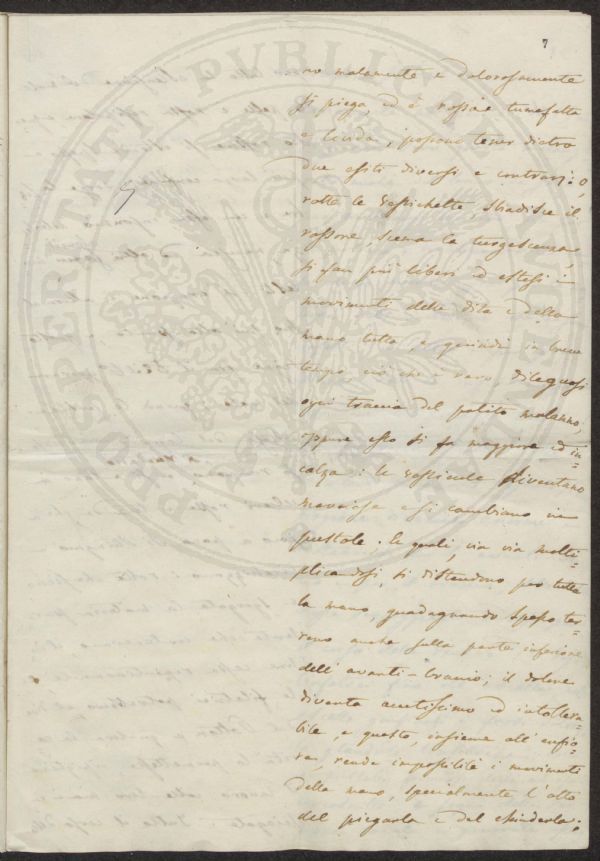 7
no malamente e dolorosamente
si piega, ed è rossa e tumefatta
e lucida, possono tener dietro
due esiti diversi e contrarj: o,
rotte le vessichette, sbadisce il
rossore, scema la turgescenza
si fan più liberi ed estesi i
movimenti delle dita e della
mano tutta, e quindi in breve
tempo, ciò che è raro, dileguasi
ogni traccia del patito malanno,
oppure esso si fa maggiore ed in=
calza: le vessicule diventano
marciose e si cambiano in
pustole; le quali, via via molti=
plicandosi, si distendono per tutta
la mano, guadagnando spesso ter=
reno anche sulla parte inferiore
dell' avanti-braccio; il dolore
diventa acutissimo ed intollera=
bile, e questo, insieme all' enfia=
ra, rende impossibile i movimenti
della mano, specialmente l'atto
del piegarla e del chiuderla;
PROSPERITATI PUBLICAE AUGENDAE